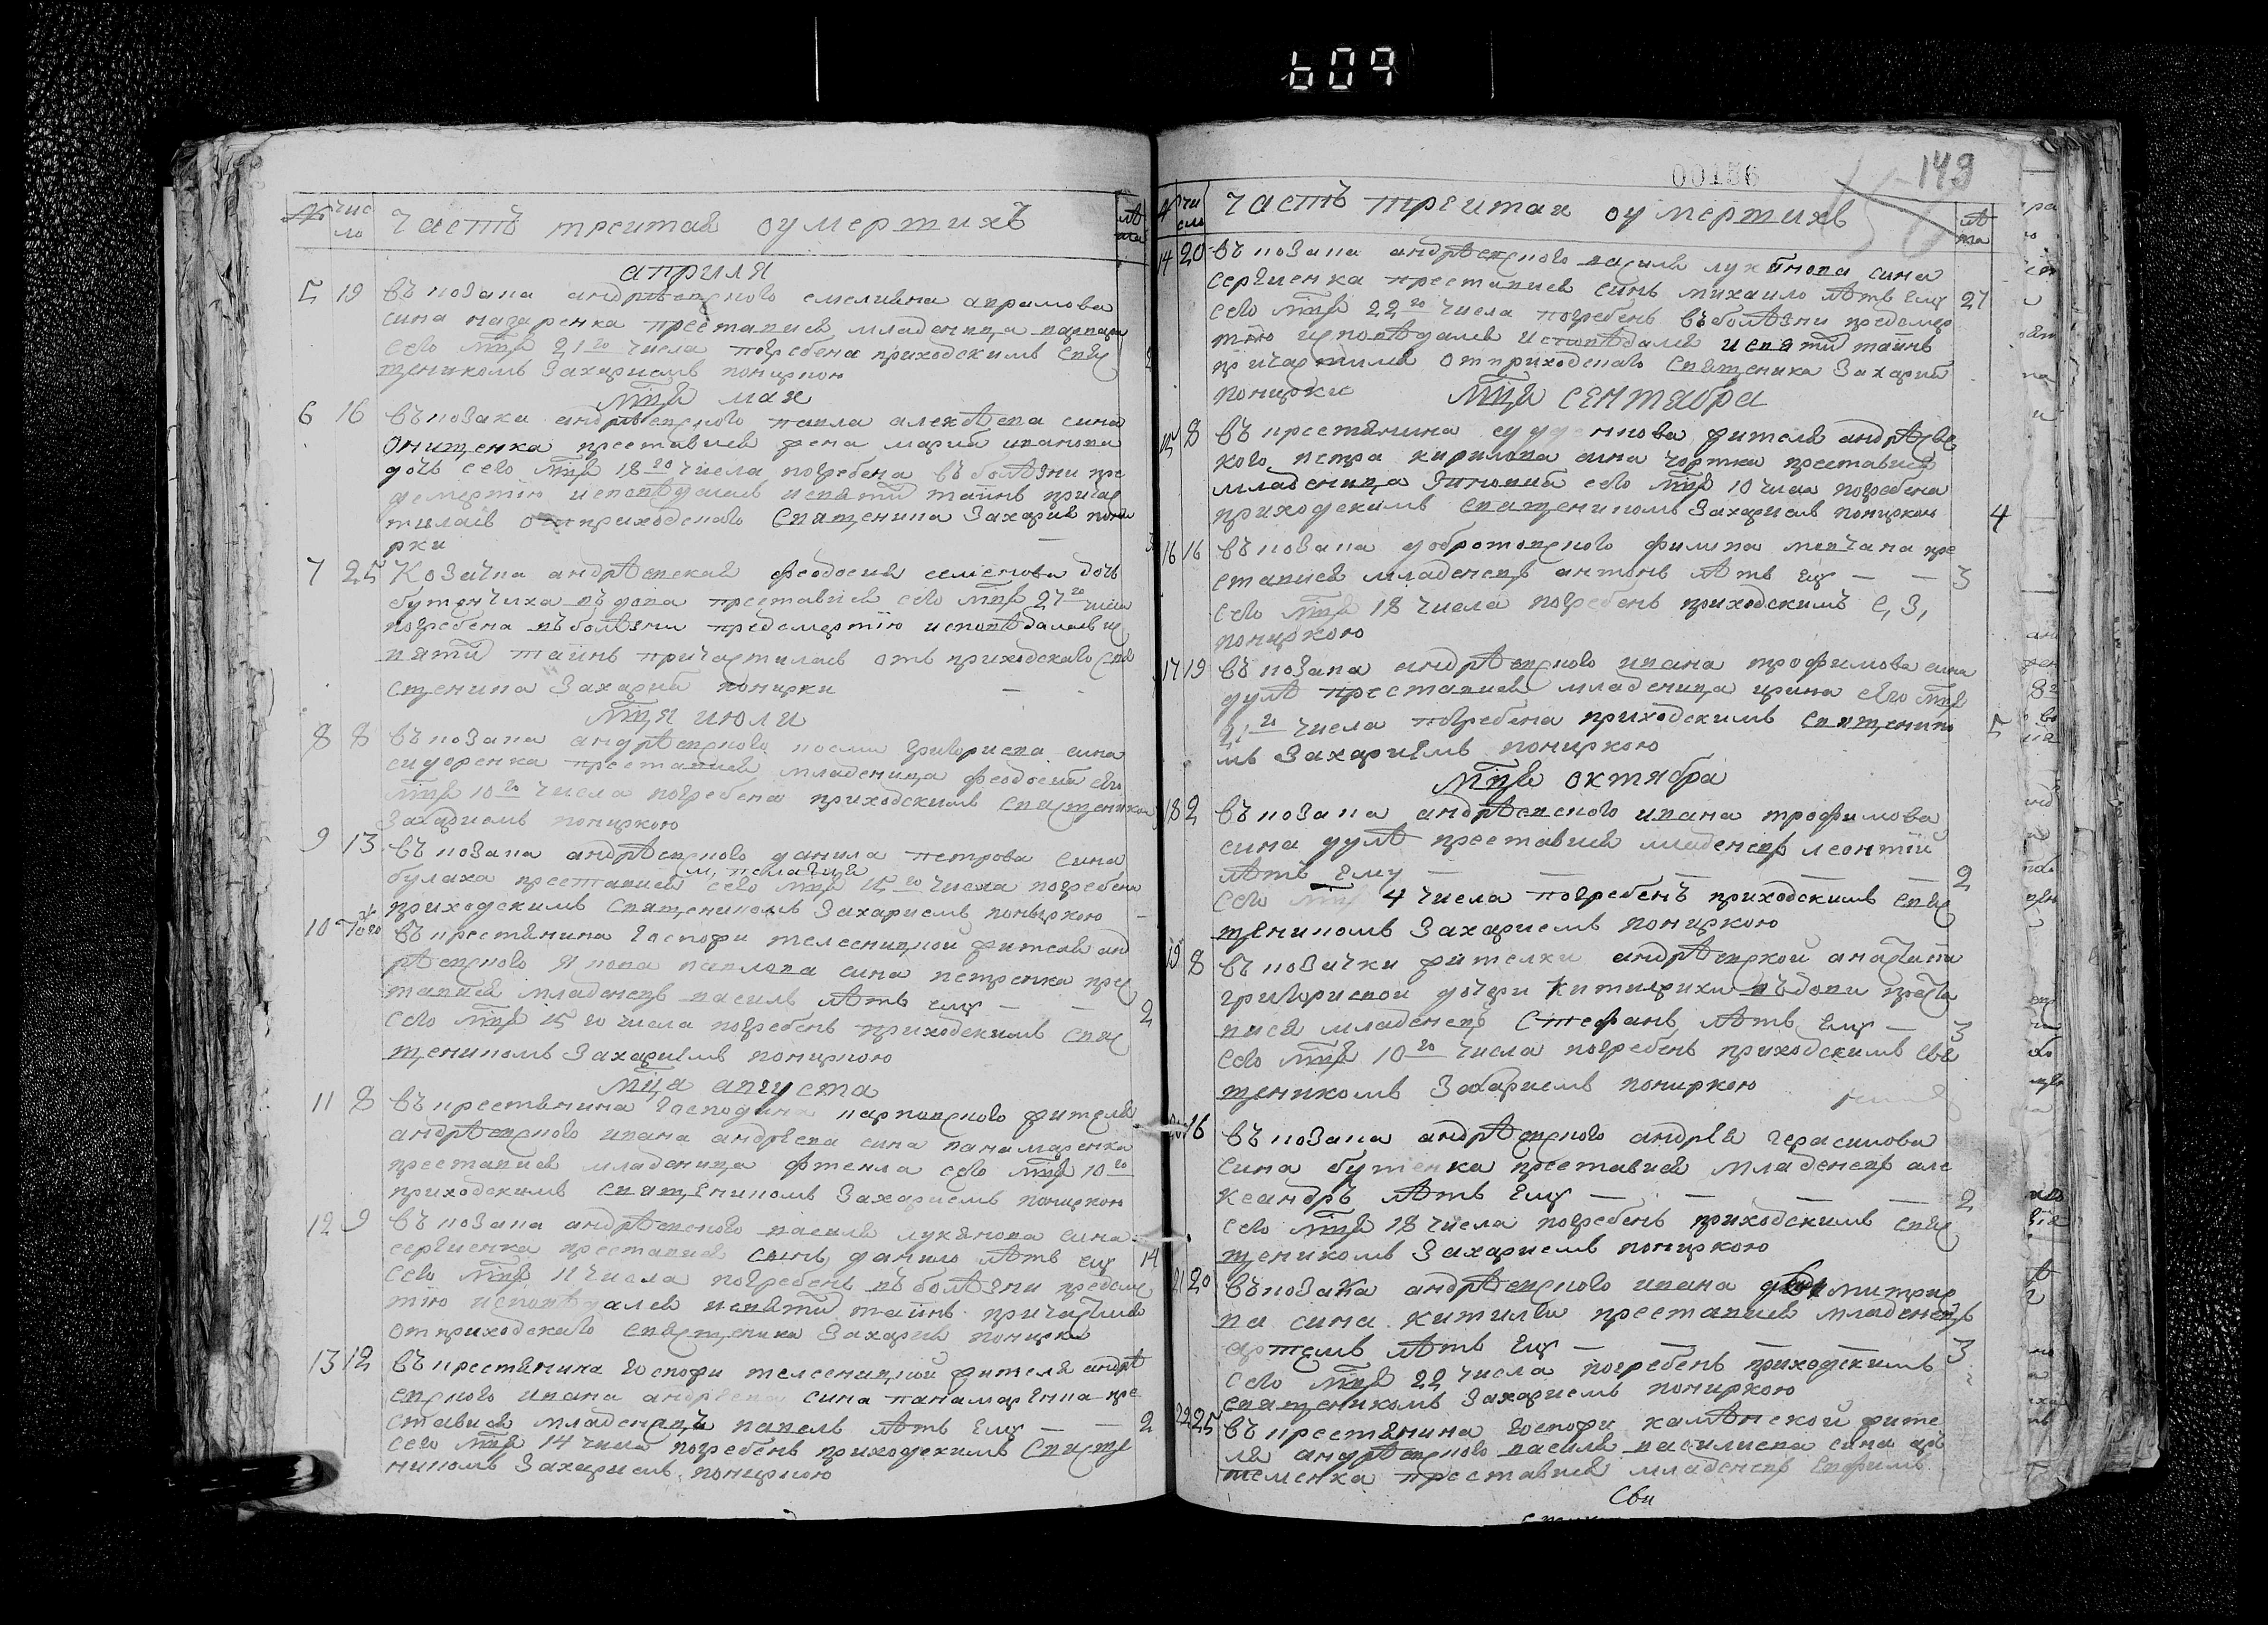 609
№ число Часть третая о умертихъ лѣта
априля
5 19 въ козака андрѣевского емелияна аврамова
сина назаренка преставися младеница варвара
сего мца 21 го числа погребена приходскимъ свящ
щеникомъ Захариемъ поницкою
мца мая
6 16 въ козака андрѣевского павла алексѣева сина
онищенка преставися жена мария иванова
дочь сего мца 18 го числа погребена въ болѣзни пре
дсмертию исповѣдалась и святи таинъ причас
тилась от приходского священика Захария пони
рки
7 25 Козачка андрѣевская феодосия семенова дочь
бутенчиха въдова преставися сего мца 27 го числа
погребена въ болѣзни предсмертию исповѣдалась и с
вяти таинъ причастилась отъ приходского свя
щеника Захария понирки
мця июли
8 8 въ козака андрѣевского григориева сина
сидоренка преставися младеница феодосия сего
мца 10 го числа погребена приходскимъ священико
Захариемъ пониркою
9 13 въ козака андрѣевского данила петрова сина
м, пелагия
булаха преставися сего мца 15 го числа погребена
приходскимъ священикомъ Захариемъ пониркою
10 въ крестянина госпожи телесницкой жителя анд
рѣевского якова павлова сина петренка прес
тавися младенецъ василь лѣтъ ему — — 2
сего мца 15 го числа погребенъ приходскимъ свя
щеникомъ Захариемъ пониркою
мца августа
11 8 въ крестянина господина жителя
андрѣевского ивана андреева сина панамаренка
преставися младеница фтекла сего мца 10 го
приходскимъ священикомъ Захариемъ пониркою
12 9 въ козака андрѣевского василя лукянова сина
сергиенка преставися синъ данило лѣтъ ему 14
сего мца 11 числа погребенъ въ болѣзни предсме
тию исповѣдался и святи таинъ причастился
от приходского священика Захария понирки
13 12 въ крестянина госпожи телесницкой жителя андрѣ
евского ивана андреева сина панамаренка пре
ставися младенецъ павелъ лѣтъ ему — — 2
сего мца 14 числа погребенъ приходскимъ свяще
никомъ Захариемъ пониркою
00156
149
№ число Часть третая о умертихъ лѣта
14 20 въ козака андрѣевского василя лукянова сина
сергиенка преставися синъ михаило лѣтъ ему 27
сего мца 22 го числа погребенъ въ болѣзни предсмер
тию исповѣдался исповѣдался и святи таинъ
причастился от приходского священика Захария
понирки мца сентября
15 8 въ крестянина жителя андрѣевс
кого петра кирилова сина чортка преставися
младеница Зиновия сего мца 10 числа погребена
приходскимъ священикомъ Захариемъ пониркою 4
16 16 въ козака добротовского филипа мовчана пре
ставися младенецъ антонъ лѣтъ ему — — 3
сего мца 18 числа погребенъ приходскимъ С, З,
пониркою
17 19 въ козака андрѣевского ивана трофимова сина
дулѣ преставися младеница ирина сего мца
21 го числа погребена приходскимъ священико 5
мъ Захариемъ пониркою
мца октября
18 2 въ козака андрѣевского ивана трофимова
сина дулѣ преставися младенецъ леонтий
лѣтъ ему — — — — 2
сего мца 4 числа погребенъ приходскимъ свя
щеникомъ Захариемъ пониркою
19 8 въ козачки жителки андрѣевской анастасии
григориевой дочери въдови преста
вися младенецъ Стефанъ лѣтъ ему — 3
сего мца 10 го числа погребенъ приходскимъ свя
щеникомъ Захариемъ пониркою
20 16 въ козака андрѣевского андрея герасимова
сина бутенка преставися младенецъ але
ксандръ лѣтъ ему — — — — 2
сего мца 18 числа погребенъ приходскимъ свя
щеникомъ Захариемъ пониркою
21 20 въ козака андрѣевского ивана дмитрие
ва сина китиля преставися младенецъ
артемъ лѣтъ ему — — — 3
сего мца 22 числа погребенъ приходскимъ
священикомъ Захариемъ пониркою
22 25 въ крестянина госпожи жите
ля андрѣевского василя василиева сина ар
теменка преставися младенецъ Евфимъ
Свя